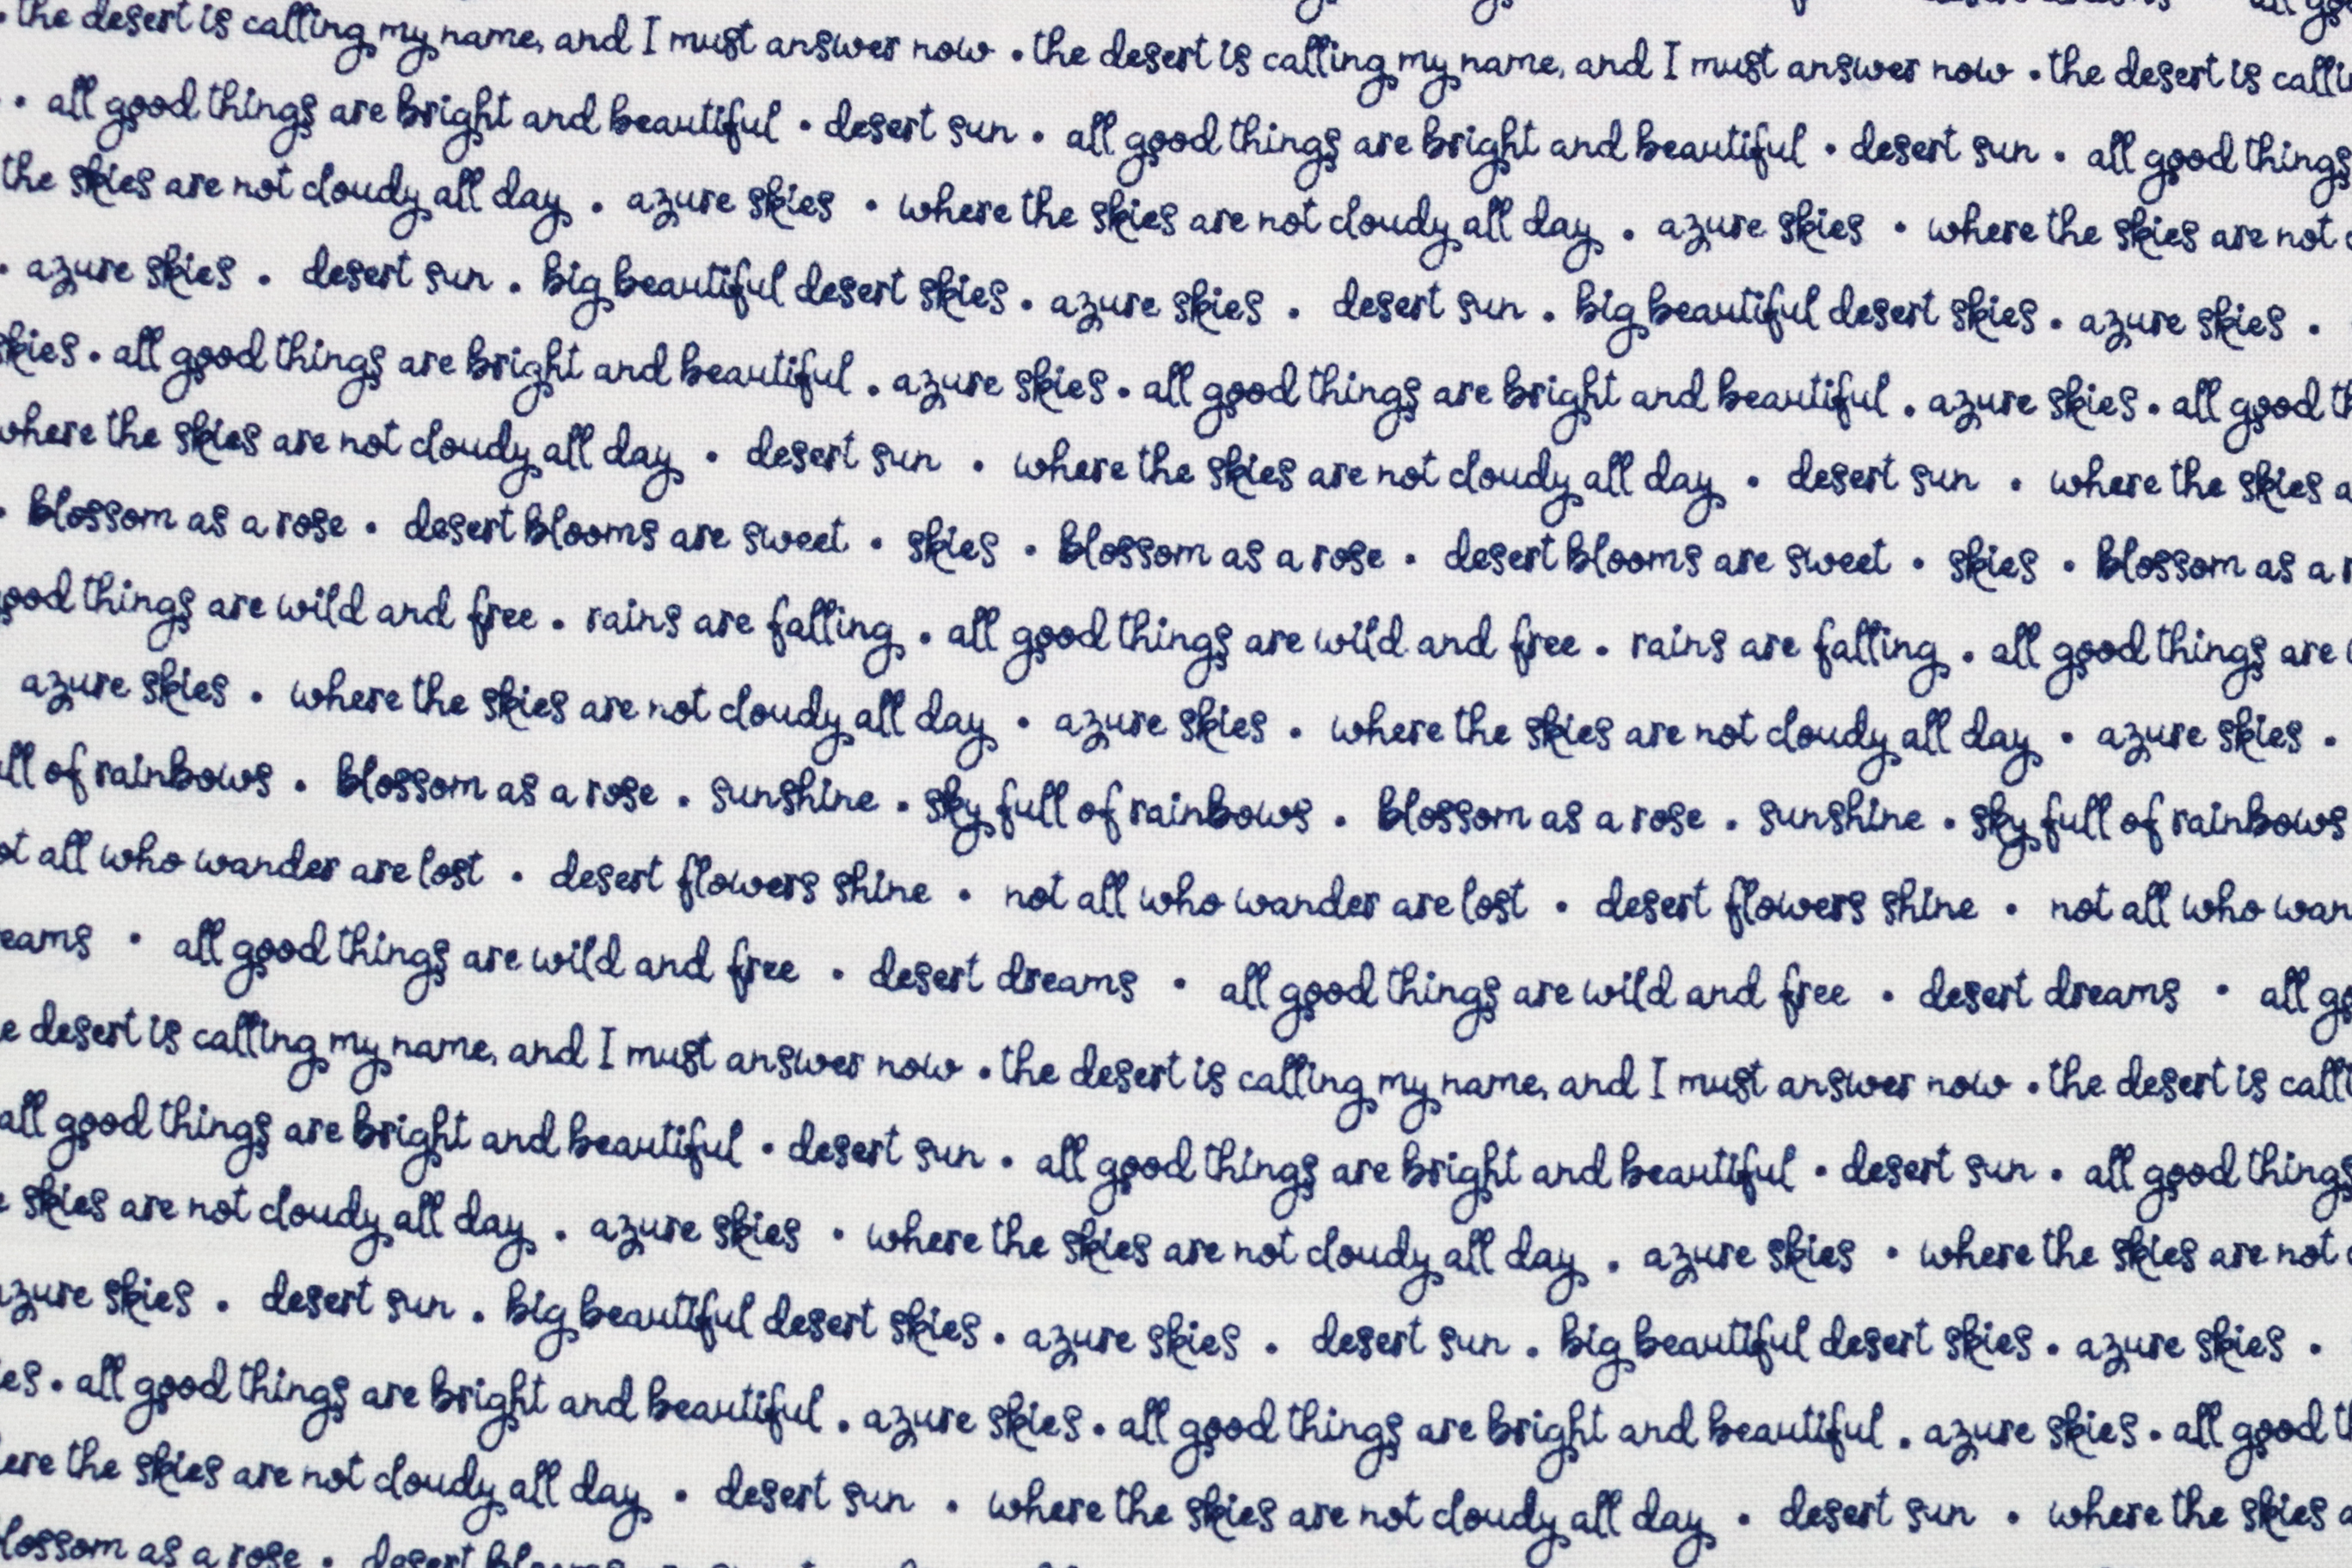 • the desert is calling my name, and I must answer now • the desert is calling my name, and I must answer now • the desert is
• all good things are bright and beautiful • desert sun • all good things are bright and beautiful • desert sun • all good things
the skies are not cloudy all day • azure skies • where the skies are not cloudy all day • azure skies • where the skies are not
• azure skies • desert sun • big beautiful desert skies • azure skies • desert sun • big beautiful desert skies • azure skies •
skies • all good things are bright and beautiful • azure skies • all good things are bright and beautiful • azure skies • all good
where the skies are not cloudy all day • desert sun • where the skies are not cloudy all day • desert sun • where the skies
• blossom as a rose • desert blooms are sweet • skies • blossom as a rose • desert blooms are sweet • skies • blossom as a
good things are wild and free • rains are falling • all good things are wild and free • rains are falling • all good things are
azure skies • where the skies are not cloudy all day • azure skies • where the skies are not cloudy all day • azure skies •
of rainbows • blossom as a rose • sunshine • sky full of rainbows • blossom as a rose • sunshine • sky full of rainbows
all who wander are lost • desert flowers shine • not all who wander are lost • desert flowers shine • not all who
• all good things are wild and free • desert dreams • all good things are wild and free • desert dreams • all
desert is calling my name, and I must answer now • the desert is calling my name, and I must answer now • the desert is
all good things are bright and beautiful • desert sun • all good things are bright and beautiful • desert sun • all good things
skies are not cloudy all day • azure skies • where the skies are not cloudy all day • azure skies • where the skies are not
azure skies • desert sun • big beautiful desert skies • azure skies • desert sun • big beautiful desert skies • azure skies •
• all good things are bright and beautiful • azure skies • all good things are bright and beautiful • azure skies • all good
the skies are not cloudy all day • desert sun • where the skies are not cloudy all day • desert sun • where the skies
blossom as a rose • desert